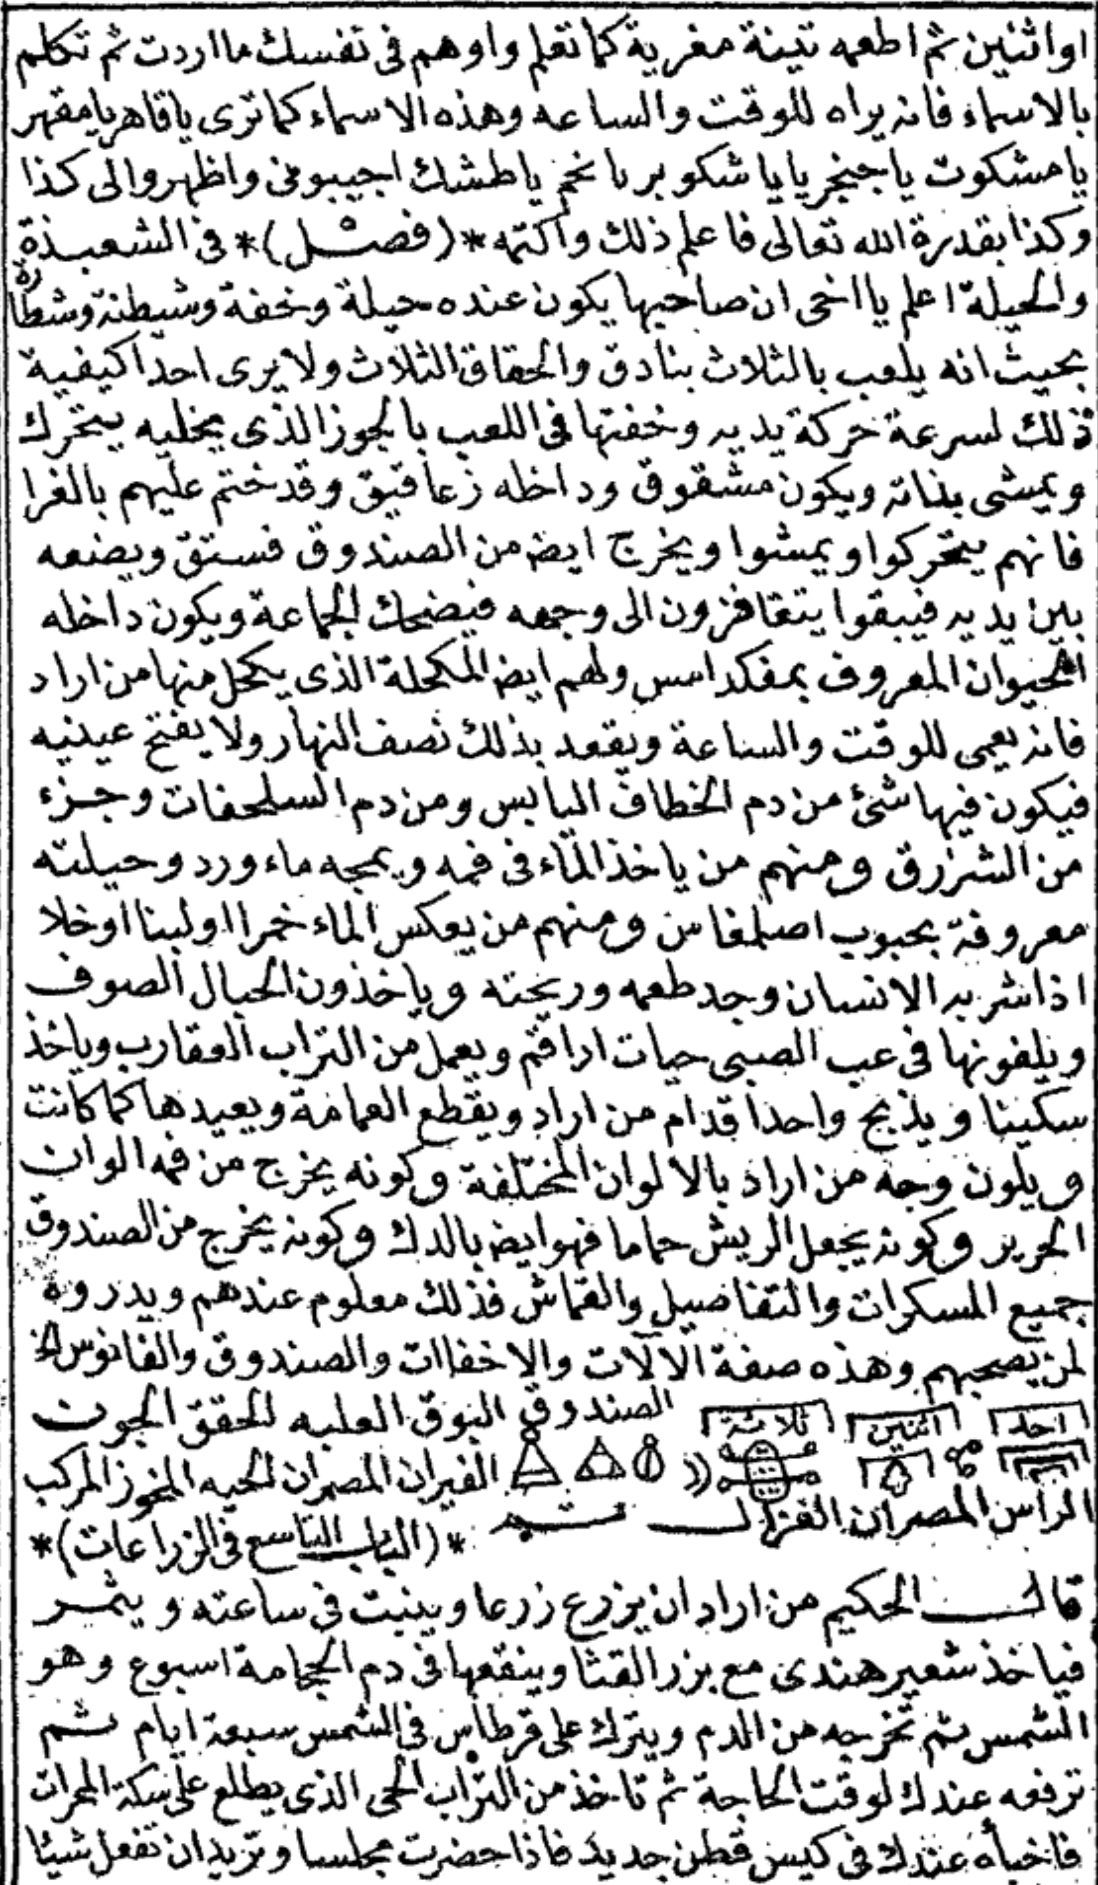 او اثنين ثم اطعمه تينة مغرية كما تعلم واوهم فى نفسك ما اردت ثم تكلم
بالاسماء فانه يراه للوقت والساعه وهذه الاسماء كما ترى ياقاهر يامقهر
يا مشكوت يا جنجر يا يا شكو بر يا نخم يا طشك اجيبونى واظهروا لى كذا
وكذا بقدرة الله تعالى فاعلم ذلك واكتمه *(فصل)* فى الشعبذة
والحيلة اعلم يا اخى ان صاحبها يكون عنده حيلة وخفة وشيطنة وشطارة
بحيث انه يلعب بالثلاث بنادق والحقاق الثلاث ولا يرى احدا كيفية
ذلك لسرعة حركة يديه وخفتها فى اللعب بالجوز الذى يخليه يتحرك
ويمشى بذاته ويكون مشقوق وداخله زعاقيق وقد ختم عليهم بالغرا
فانهم يتحركوا ويمشوا ويخرج ايضا من الصندوق فستق ويضعه
بين يديه فيبقوا يتقافزون الى وجهه فيضحك الجماعة ويكون داخله
الحيوان المعروف بمفكداسس ولهم ايضا المكحلة الذى يكحل منها من اراد
فانه يعمى للوقت والساعة ويقعد بذلك نصف النهار ولا يفتح عينيه
فيكون فيها شئ من دم الخطاف اليابس ومن دم السلحفات وجزء
من الشزرق ومنهم من ياخذ الماء فى فمه ويمجه ماء ورد وحيلته
معروفة بحبوب اصلمغاس ومنهم من يعكس الماء خمرا او لبنا او خلا
اذا شربه الانسان وجد طعمه وريحته وياخذون الحبال الصوف
ويلفونها فى عب الصبى حيات اراقم ويعمل من التراب العقارب وياخذ
سكينا ويذبح واحدا قدام من اراد ويقطع العمامة ويعيدها كما كانت
ويلون وجه من اراد بالالوان المختلفة وكونه يخرج من فمه الوان
الحرير وكونه يجعل الريش حماما فهو ايضا بالدك وكونه يخرج من الصندوق
جميع المسكرات والتفاصيل والقماش فذلك معلوم عندهم ويدروه
لمن يصحبهم وهذه صفة الآلات والاخفاات والصندوق والفانوس الخ
احد اثنين ثلاثة الصندوق البوق العلبه الحقق الجون
الفيران المصران الحيه المخوز المركب
الراس المصران الغزال تمت *(الباب التاسع فى الزراعات)*
قال الحكيم من اراد ان يزرع زرعا وينبت فى ساعته ويثمر
فياخذ شعير هندى مع بزر القثا وينقعها فى دم الحجامة اسبوع وهو
الشمس ثم تخرجه من الدم ويترك على قرطاس فى الشمس سبعة ايام ثم
ترفعه عندك لوقت الحاجة ثم تاخذ من التراب الحى الذى يطلع على سكة المحرات
فاخبأه عندك فى كيس قطن جديد فاذا حضرت مجلسا وتريد ان تفعل شيئا